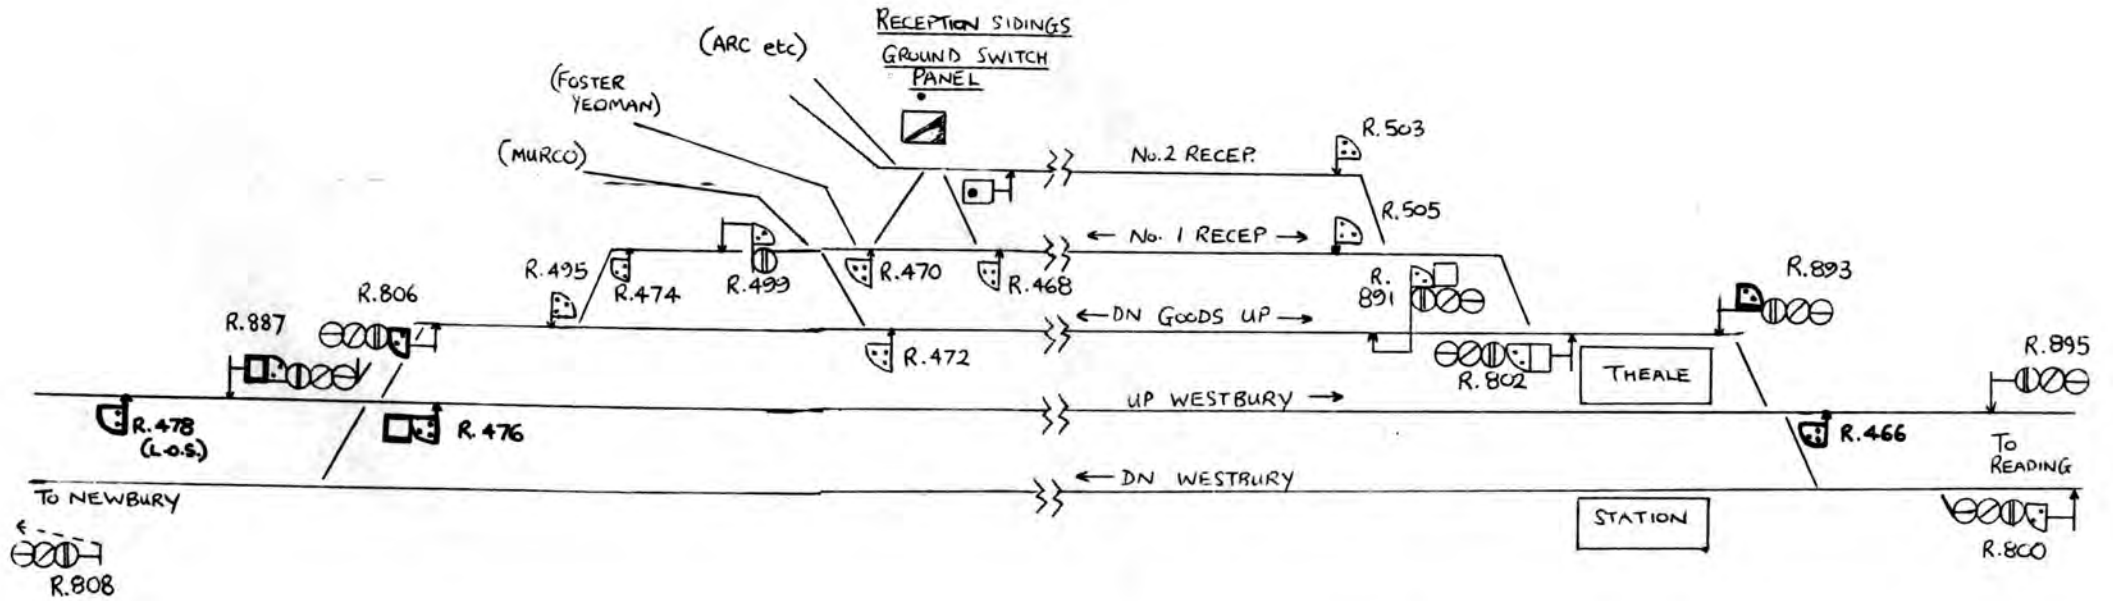 RECEPTION SIDINGS
GROUND SWITCH
PANEL
(ARC etc)
(FOSTER
YEOMAN)
(MURCO)
R.503
No.2 RECEP.
R.505
← No. 1 RECEP →
R.495
R.474
R.499
R.470
R.468
R.
891
R.893
R.806
R.887
← DN GOODS UP →
R.472
R.802
THEALE
R.895
UP WESTBURY →
R.478
(L.O.S.)
R.476
R.466
TO
READING
← DN WESTBURY
TO NEWBURY
STATION
R.800
R.808